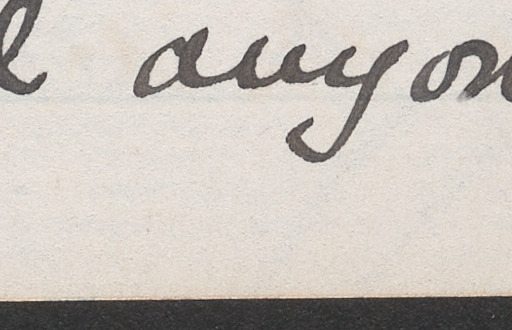 l anyon